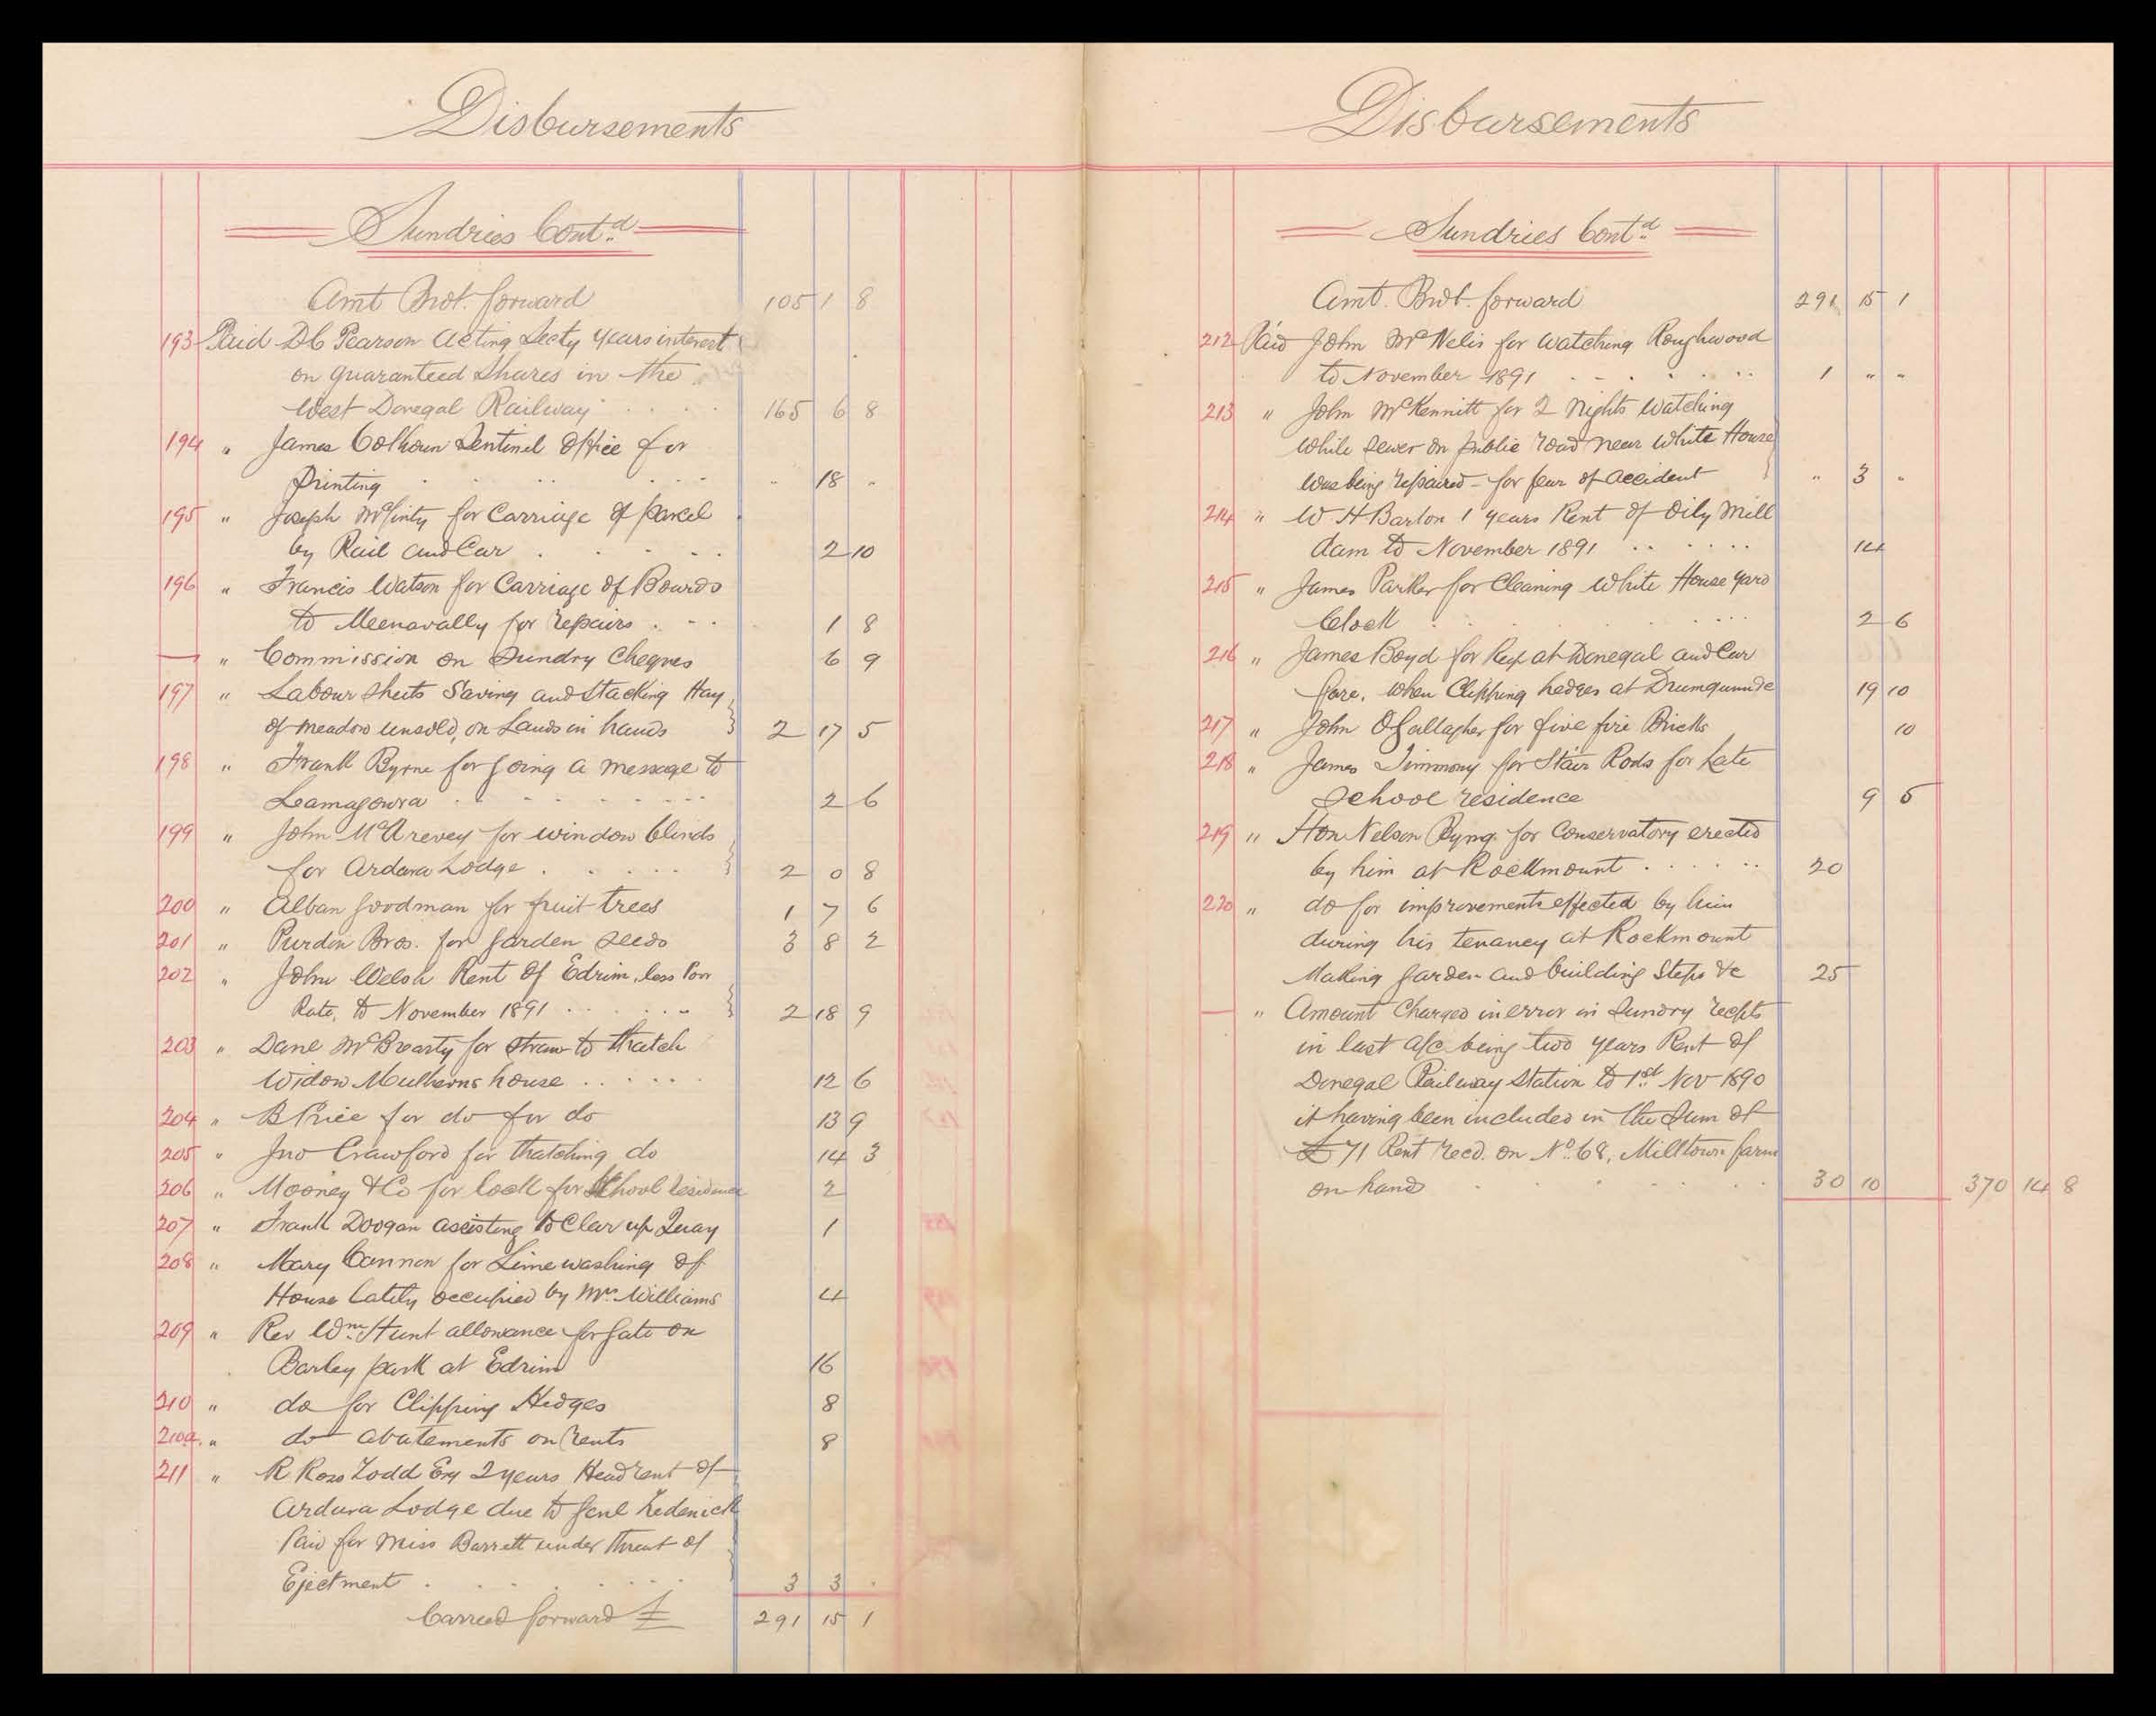 Disbursements
Sundries Contd
Amt Brot. forward 105 1 8
193 Paid DC Pearson Acting Secty years interest
on guaranteed Shares in the
West Donegal Railway 165 6 8
194 " James Colhoun Sentinel Office for
Printing " 18 "
195 " Joseph McGinty for Carriage of parcel
by Rail and Car 2 10
196 " Francis Watson for Carriage of Boards
to Meenavally for repairs 1 8
— " Commission on Sundry Cheques 6 9
197 " Labour Sheets Saving and Stacking Hay
of meadow unsold, on Lands in hands 2 17 5
198 " Frank Byrne for going a message to
Leamagowra 2 6
199 " John McAnevey for window blinds
for Ardara Lodge 2 0 8
200 " Alban Goodman for fruit trees 1 7 6
201 " Purdon Bros. for Garden Seeds 3 8 2
202 " John Welsh Rent of Edrim, less Poor
Rate, to November 1891 2 18 9
203 " Dane McBrearty for straw to thatch
Widow Mulherns house 12 6
204 " B Price for do for do 13 9
205 " Jno Crawford for thatching do 14 3
206 " Mooney & Co for lock for School residence 2
207 " Frank Doogan assisting to Clear up Quay 1
208 " Mary Cannon for Lime washing of
House lately occupied by Mrs Williams 4
209 " Rev Wm Hunt allowance for gate on
Barley park at Edrim 16
210 " do for Clipping Hedges 8
210a. " do abatements on rents 8
211 " R Ross Todd Esq 2 years Head rent of
Ardara Lodge due to Genl Tredenick
Paid for Miss Barrett under threat of
Ejectment 3 3 "
Carried forward £ 291 15 1
Disbursements
Sundries Contd
Amt. Brot. forward 291 15 1
212 Paid John McNelis for watching Roughwood
to November 1891 1 " "
213 " John McKennitt for 2 Nights Watching
while sewer on public road near White House
was being repaired - for fear of accident " 3 "
214 " W H Barton 1 years Rent of Oily Mill
dam to November 1891 14
215 " James Parker for Cleaning White House yard
Clock 2 6
216 " James Boyd for Keep at Donegal and Car
fare, when Clipping hedges at 19 10
217 " John OGallagher for five fire Bricks 10
218 " James Timmony for Stair Rods for Kate
School residence 9 5
219 " Hon Nelson Byng. for Conservatory erected
by him at Rockmount 20
220 " do for improvements effected by him
during his tenancy at Rockmount
Making garden and building Steps &c 25
— " Amount Charged in error in Sundry recpts
in last a/c being two years Rent of
Donegal Railway Station to 1st Nov 1890
it having been included in the Sum of
£71 Rent recd. on No 68, Milltown farm
on hand 30 10 370 14 8